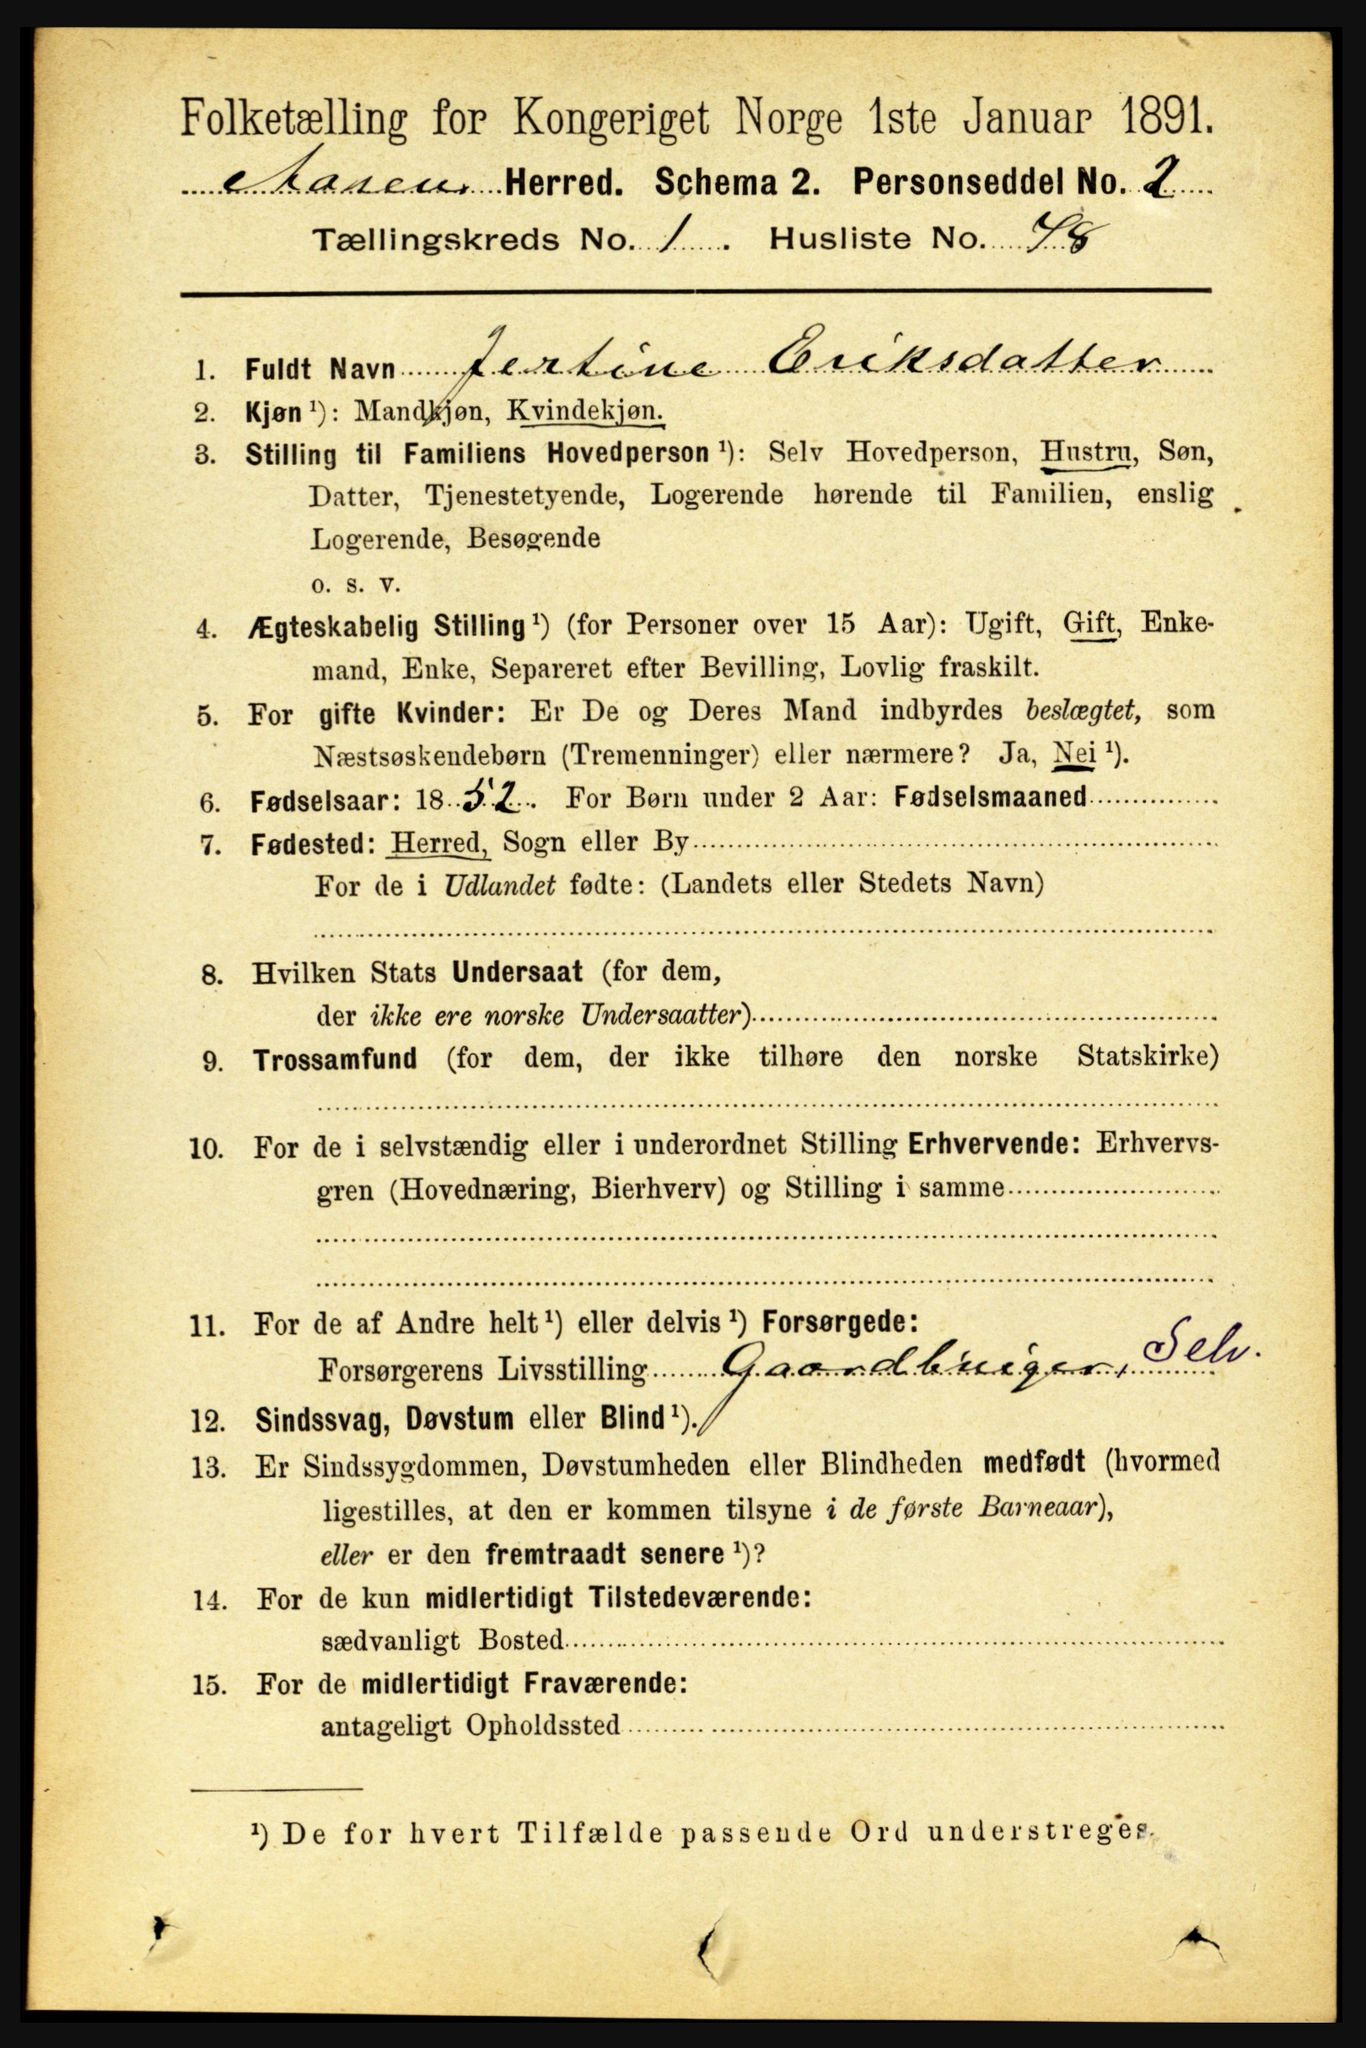 Folketælling for Kongeriget Norge 1ste Januar 1891.
Aasen Herred. Schema 2. Personseddel No. 2
Tællingskreds No. 1. Husliste No. 48
1. Fuldt Navn Jertine Eriksdatter
2. Kjøn ¹): Mandkjøn, Kvindekjøn.
3. Stilling til Familiens Hovedperson ¹): Selv Hovedperson, Hustru, Søn,
Datter, Tjenestetyende, Logerende hørende til Familien, enslig
Logerende, Besøgende
o. s. v.
4. Ægteskabelig Stilling ¹) (for Personer over 15 Aar): Ugift, Gift, Enke-
mand, Enke, Separeret efter Bevilling, Lovlig fraskilt.
5. For gifte Kvinder: Er De og Deres Mand indbyrdes beslægtet, som
Næstsøskendebørn (Tremenninger) eller nærmere? Ja, Nei ¹).
6. Fødselsaar: 1852. For Børn under 2 Aar: Fødselsmaaned
7. Fødested: Herred, Sogn eller By
For de i Udlandet fødte: (Landets eller Stedets Navn)
8. Hvilken Stats Undersaat (for dem,
der ikke ere norske Undersaatter)
9. Trossamfund (for dem, der ikke tilhøre den norske Statskirke)
10. For de i selvstændig eller i underordnet Stilling Erhvervende: Erhvervs-
gren (Hovednæring, Bierhverv) og Stilling i samme
11. For de af Andre helt ¹) eller delvis ¹) Forsørgede:
Forsørgerens Livsstilling Gaardbruger, Selv.
12. Sindssvag, Døvstum eller Blind ¹).
13. Er Sindssygdommen, Døvstumheden eller Blindheden medfødt (hvormed
ligestilles, at den er kommen tilsyne i de første Barneaar),
eller er den fremtraadt senere ¹)?
14. For de kun midlertidigt Tilstedeværende:
sædvanligt Bosted
15. For de midlertidigt Fraværende:
antageligt Opholdssted
¹) De for hvert Tilfælde passende Ord understreges.